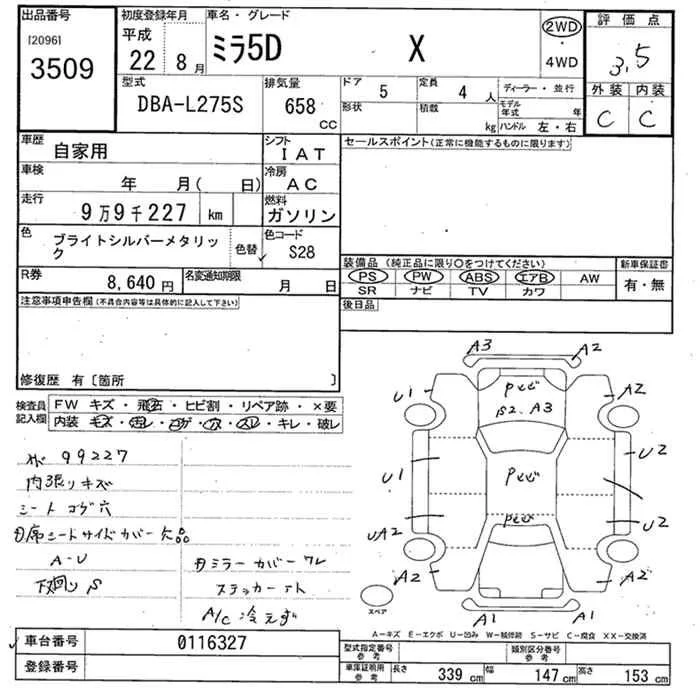 出品番号
[2096]
3509
初度登録年月
平成
22 8月
車名・グレード
ミラ5D X
2WD
・
4WD
評価点
3.5
外装 内装
C C
型式
DBA-L275S
排気量
658
CC
ドア
5
定員
4 人
形状
積載
kg
ディーラー・並行
モデル年式 年
ハンドル 左・右
車歴
自家用
シフト
IAT
車検
年 月( 日)
冷房
AC
走行
9万9千227 km
燃料
ガソリン
色
ブライトシルバーメタリック
色替
色コード
S28
R券
8,640 円
名変通知期限
月 日
セールスポイント(正常に機能するものに限ります)
装備品 (純正品に限り○をつけてください)
PS PW ABS エアB AW
SR ナビ TV カワ
新車保証書
有・無
後日品
注意事項申告欄(不具合内容等は具体的に記入して下さい)
修復歴 有〔箇所 〕
検査員
記入欄
FW キズ・飛石・ヒビ割・リペア跡・×要
内装 キズ・汚レ・コゲ・穴・スレ・キレ・破レ
99227
内張りキズ
シートコゲ穴
シートサイドカバー欠品
A-U
下廻りS
ミラーカバーワレ
ステッカー
A/C 冷えず
A3 A2
U1 A2
ocビ
B2. A3
U1 U2
UA2 U2
A2 A2
A1 A1
スペア
A-キズ E-エクボ U-凹み W-補修跡 S-サビ C-腐食 XX-交換済
車台番号
0116327
登録番号
型式指定番号
参考
類別区分番号
参考
車庫証明用
参考
長さ 339 cm
幅 147 cm
高さ 153 cm